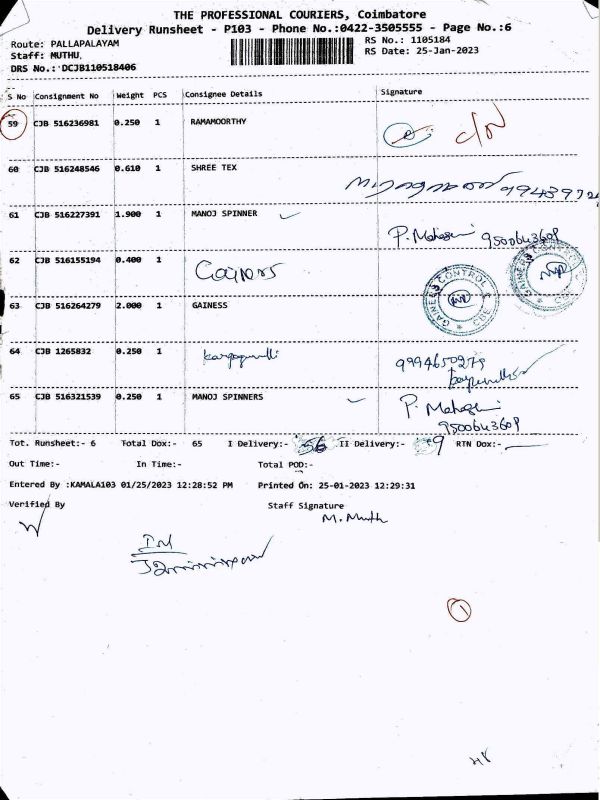 THE PROFESSIONAL COURIERS, Coimbatore
Delivery Runsheet - P103 - Phone No.:0422-3505555 - Page No.:6
Route: PALLAPALAYAM
RS No.: 1105184
Staff: MUTHU,
RS Date: 25-Jan-2023
DRS No.: DCJB110518406
S No Consignment No Weight PCS Consignee Details Signature
59 CJB 516236981 0.250 1 RAMAMOORTHY
60 CJB 516248546 0.610 1 SHREE TEX
61 CJB 516227391 1.900 1 MANOJ SPINNER P. Mahes 9500643609
62 CJB 516155194 0.400 1 Gainers
GAINEES CONTROL CBE
GAINEES CONTROL CBE
63 CJB 516264279 2.000 1 GAINESS
64 CJB 1265832 0.250 1 9994650279
65 CJB 516321539 0.250 1 MANOJ SPINNERS P. Mahes
9500643609
Tot. Runsheet:- 6 Total Dox:- 65 I Delivery:- 56 II Delivery:- 9 RTN Dox:-
Out Time:- In Time:- Total POD:-
Entered By :KAMALA103 01/25/2023 12:28:52 PM Printed On: 25-01-2023 12:29:31
Verified By Staff Signature
M. Muth
1